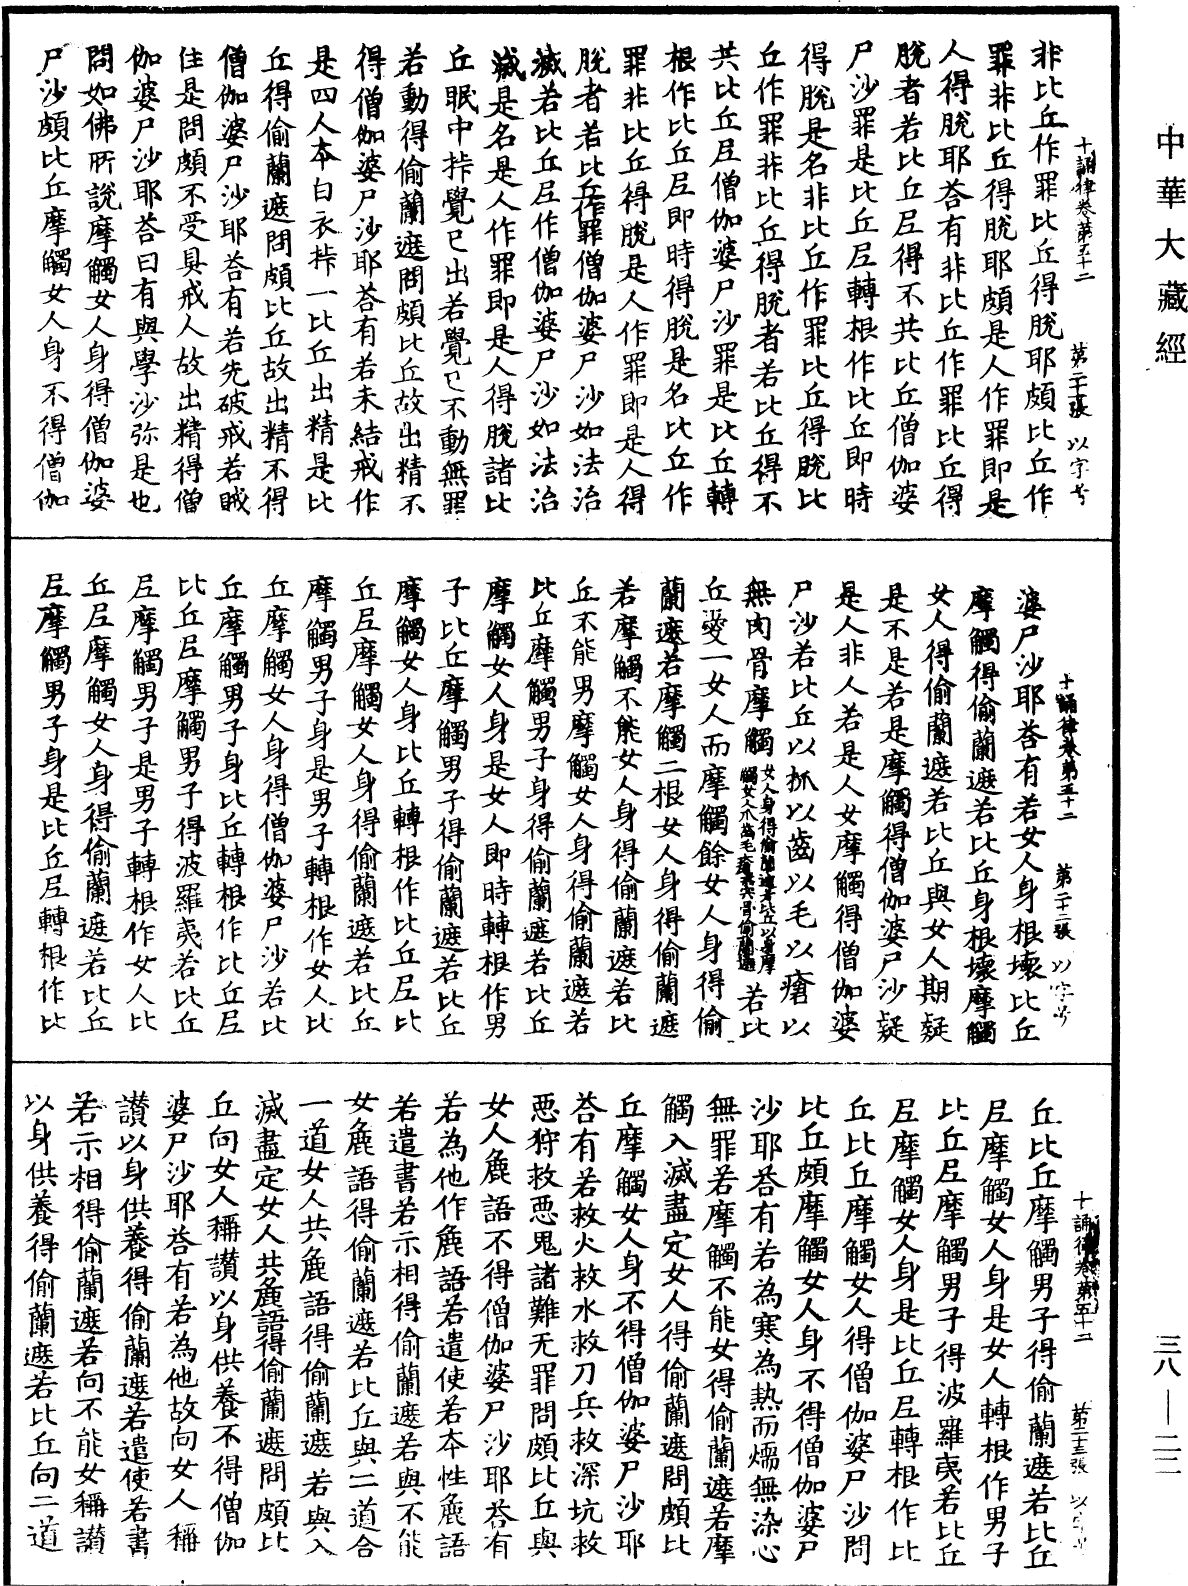 中華大藏經
三八—二一二
十誦律卷第五十二 第二十一張 以字号
非比丘作罪比丘得脫耶頗比丘作
罪非比丘得脫耶頗是人作罪即是
人得脫耶荅有非比丘作罪比丘得
脫者若比丘𡰱得不共比丘僧伽婆
尸沙罪是比丘𡰱轉根作比丘即時
得脫是名非比丘作罪比丘得脫比
丘作罪非比丘得脫者若比丘得不
共比丘𡰱僧伽婆尸沙罪是比丘轉
根作比丘𡰱即時得脫是名比丘作
罪非比丘得脫是人作罪即是人得
脫者若比丘作罪僧伽婆尸沙如法治
滅若比丘𡰱作僧伽婆尸沙如法治
滅是名是人作罪即是人得脫諸比
丘眠中𢫦覺已出若覺已不動無罪
若動得偷蘭遮問頗比丘故出精不
得僧伽婆尸沙耶荅有若未結戒作
是四人本白衣𢫦一比丘出精是比
丘得偷蘭遮問頗比丘故出精不得
僧伽婆尸沙耶荅有若先破戒若賊
住是問頗不受具戒人故出精得僧
伽婆尸沙耶荅曰有與學沙弥是也
問如佛所說摩觸女人身得僧伽婆
尸沙頗比丘摩觸女人身不得僧伽
十誦律卷第五十二 第二十二張 以字号
婆尸沙耶荅有若女人身根壞比丘
摩觸得偷蘭遮若比丘身根壞摩觸
女人得偷蘭遮若比丘與女人期疑
是不是若是摩觸得僧伽婆尸沙疑
是人非人若是人女摩觸得僧伽婆
尸沙若比丘以抓以齒以毛以瘡以
無肉骨摩觸女人身得偷蘭遮若比丘以身摩觸女人爪齒毛瘡無肉骨偷蘭遮若比
丘愛一女人而摩觸餘女人身得偷
蘭遮若摩觸二根女人身得偷蘭遮
若摩觸不能女人身得偷蘭遮若比
丘不能男摩觸女人身得偷蘭遮若
比丘摩觸男子身得偷蘭遮若比丘
摩觸女人身是女人即時轉根作男
子比丘摩觸男子得偷蘭遮若比丘
摩觸女人身比丘轉根作比丘𡰱比
丘𡰱摩觸女人身得偷蘭遮若比丘
摩觸男子身是男子轉根作女人比
丘摩觸女人身得僧伽婆尸沙若比
丘摩觸男子身比丘轉根作比丘𡰱
比丘𡰱摩觸男子得波羅夷若比丘
𡰱摩觸男子是男子轉根作女人比
丘𡰱摩觸女人身得偷蘭遮若比丘
𡰱摩觸男子身是比丘𡰱轉根作比
十誦律卷第五十二 第二十三張 以字号
丘比丘摩觸男子得偷蘭遮若比丘
𡰱摩觸女人身是女人轉根作男子
比丘𡰱摩觸男子得波羅夷若比丘
𡰱摩觸女人身是比丘𡰱轉根作比
丘比丘摩觸女人得僧伽婆尸沙問
比丘頗摩觸女人身不得僧伽婆尸
沙耶荅有若為寒為熱而煗無染心
無罪若摩觸不能女得偷蘭遮若摩
觸入滅盡定女人得偷蘭遮問頗比
丘摩觸女人身不得僧伽婆尸沙耶
荅有若救火救水救刀兵救深坑救
惡狩救惡鬼諸難无罪問頗比丘與
女人麁語不得僧伽婆尸沙耶荅有
若為他作麁語若遣使若本性麁語
若遣書若示相得偷蘭遮若與不能
女麁語得偷蘭遮若比丘與二道合
一道女人共麁語得偷蘭遮若與入
滅盡定女人共麁語得偷蘭遮問頗比
丘向女人稱讃以身供養不得僧伽
婆尸沙耶荅有若為他故向女人稱
讃以身供養得偷蘭遮若遣使若書
若示相得偷蘭遮若向不能女稱讃
以身供養得偷蘭遮若比丘向二道